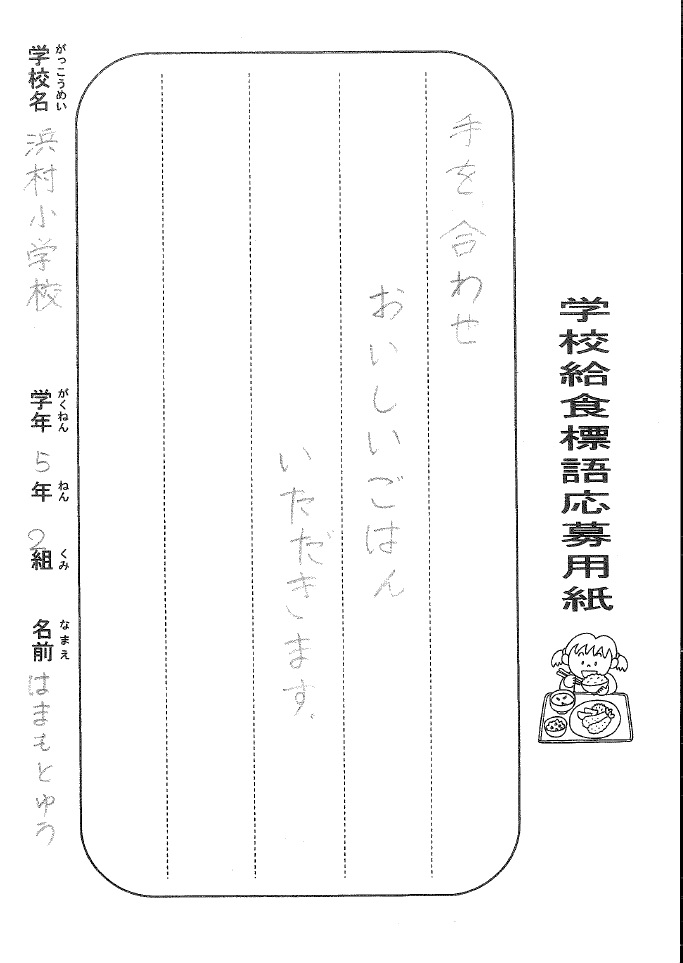 学校給食標語応募用紙
手を合わせ
おいしいごはん
いただきます.
学校名 浜村小学校 学年 5年 2組 名前 はまもとゆう
がっこうめい がくねん ねん くみ なまえ